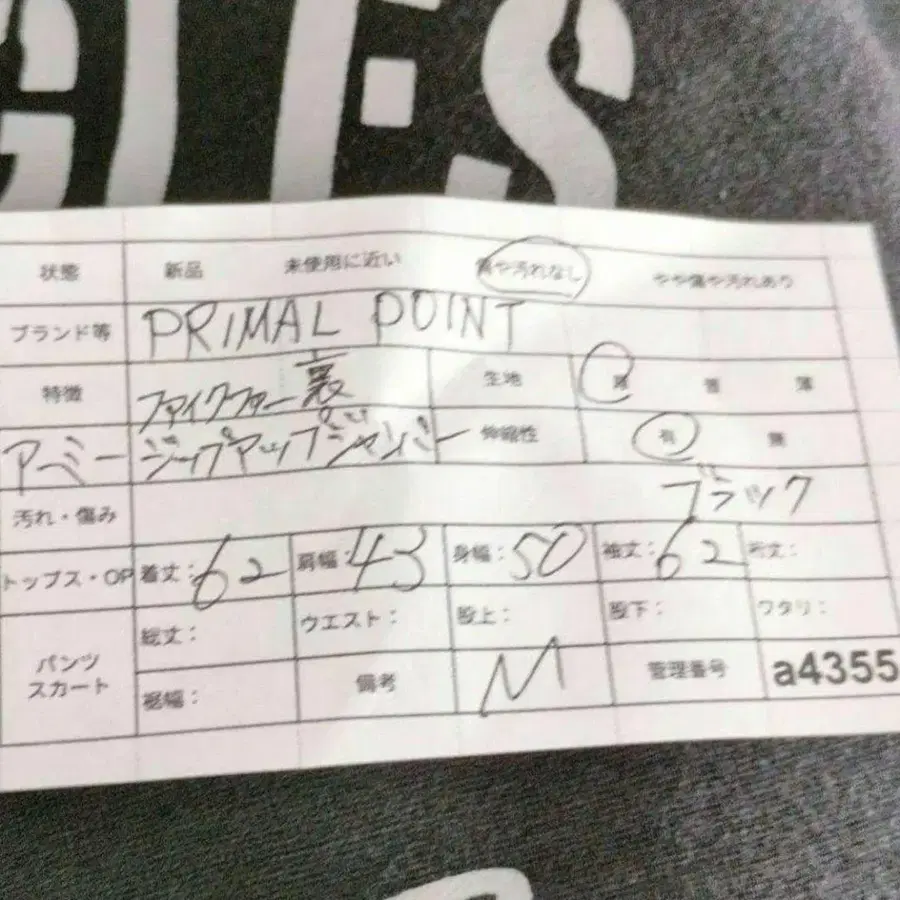 GLES
状態 新品 未使用に近い 傷や汚れなし やや傷や汚れあり
ブランド等 PRIMAL POINT
特徴 ファイクファー裏 生地 厚 普 薄
アーミー ジップアップジャンパー 伸縮性 有 無
ブラック
汚れ・傷み
トップス・OP 着丈:62 肩幅:43 身幅:50 袖丈:62 裄丈:
パンツ スカート 総丈: ウエスト: 股上: 股下: ワタリ:
裾幅: 備考 M 管理番号 a4355